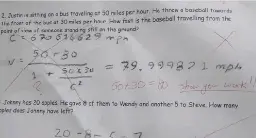 2. Justin is sitting on a bus traveling at 50 miles per hour. He throws a baseball towards
the front of the bus at 30 miles per hour. How fast is the baseball travelling from the
point of view of someone standing still on the ground?
C = 670616629 mph
V = 50 + 30 / 1 + 50 x 30 / c² = 79.999821 mph
50+30 = 80 show your work!!
Johnny has 20 apples. He gave 8 of them to Wendy and another 5 to Steve. How many
apples does Johnny have left?
20 - 8 - 5 = 7